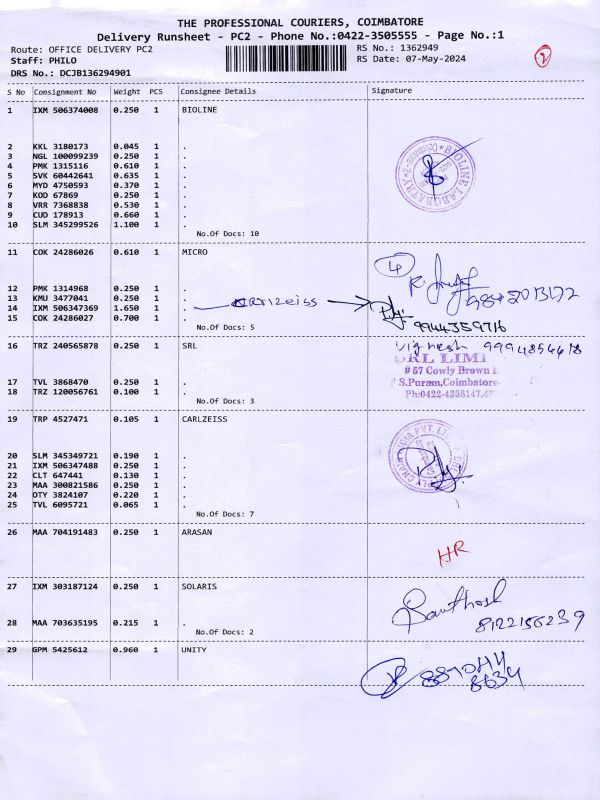 THE PROFESSIONAL COURIERS, COIMBATORE
Delivery Runsheet - PC2 - Phone No.:0422-3505555 - Page No.:1
Route: OFFICE DELIVERY PC2 RS No.: 1362949
Staff: PHILO RS Date: 07-May-2024
DRS No.: DCJB136294901
2
S No Consignment No Weight PCS Consignee Details Signature
1 IXM 506374008 0.250 1 BIOLINE
2 KKL 3180173 0.045 1 .
3 NGL 100099239 0.250 1 .
4 PMK 1315116 0.610 1 .
5 SVK 60442641 0.635 1 .
6 MYD 4750593 0.370 1 .
7 KOD 67869 0.250 1 .
8 VRR 7368838 0.530 1 .
9 CUD 178913 0.660 1 .
10 SLM 345299526 1.100 1 .
No.Of Docs: 10
BIOLINE LABORATORY
11 COK 24286026 0.610 1 MICRO
4
12 PMK 1314968 0.250 1 .
13 KMU 3477041 0.250 1 .
14 IXM 506347369 1.650 1 .
15 COK 24286027 0.700 1 .
No.Of Docs: 5
9944359716
16 TRZ 240565878 0.250 1 SRL
Vignesh 9994854618
SRL LIMI
# 57 Cowly Brown
S.Puram,Coimbatore-
Ph:0422-4358147.
17 TVL 3868470 0.250 1 .
18 TRZ 120056761 0.100 1 .
No.Of Docs: 3
19 TRP 4527471 0.105 1 CARLZEISS
20 SLM 345349721 0.190 1 .
21 IXM 506347488 0.250 1 .
22 CLT 647441 0.130 1 .
23 MAA 300821586 0.250 1 .
24 OTY 3824107 0.220 1 .
25 TVL 6095721 0.065 1 .
No.Of Docs: 7
26 MAA 704191483 0.250 1 ARASAN
HR
27 IXM 303187124 0.250 1 SOLARIS
Santhosh
8122156239
28 MAA 703635195 0.215 1 .
No.Of Docs: 2
29 GPM 5425612 0.960 1 UNITY